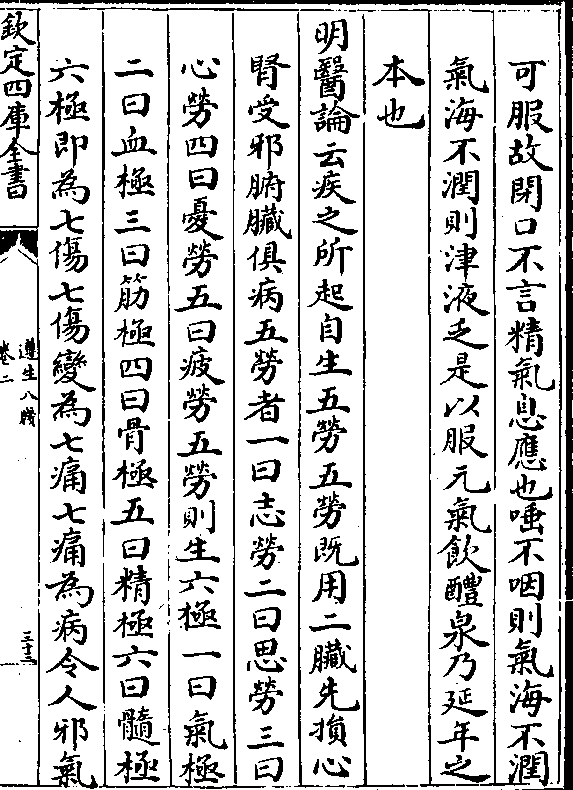 可服故閉口不言精氣息應也唾不咽則氣海不潤
氣海不潤則津液乏是以服元氣飲醴泉乃延年之
本也
明醫論云疾之所起自生五勞五勞既用二臟先損心
腎受邪腑臟俱病五勞者一曰志勞二曰思勞三曰
心勞四曰憂勞五曰疲勞五勞則生六極一曰氣極
二曰血極三曰筋極四曰骨極五曰精極六曰髓極
六極即為七傷七傷變為七痛七痛為病令人邪氣
欽定四庫全書
遵生八牋
卷二
三十三